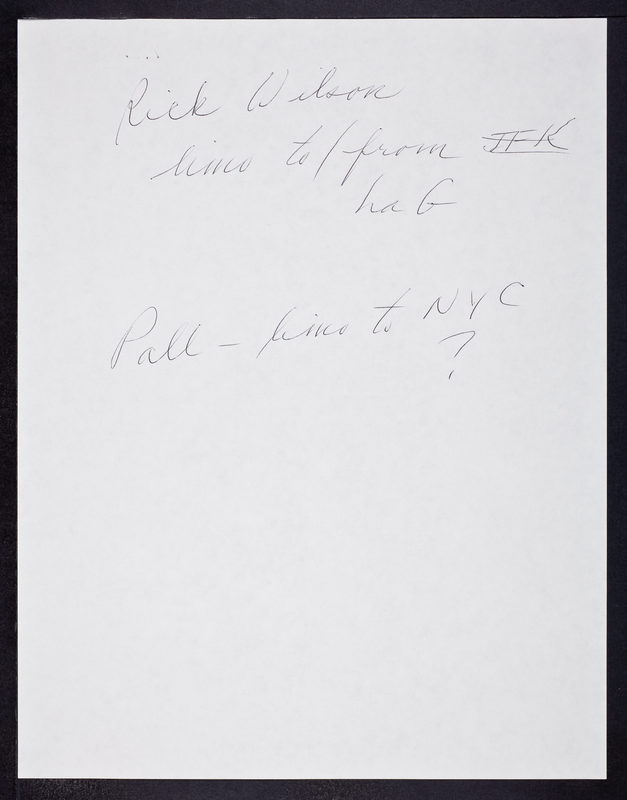 Rick Wilson
limo to/from JFK
La G
Pall - limo to NYC
?